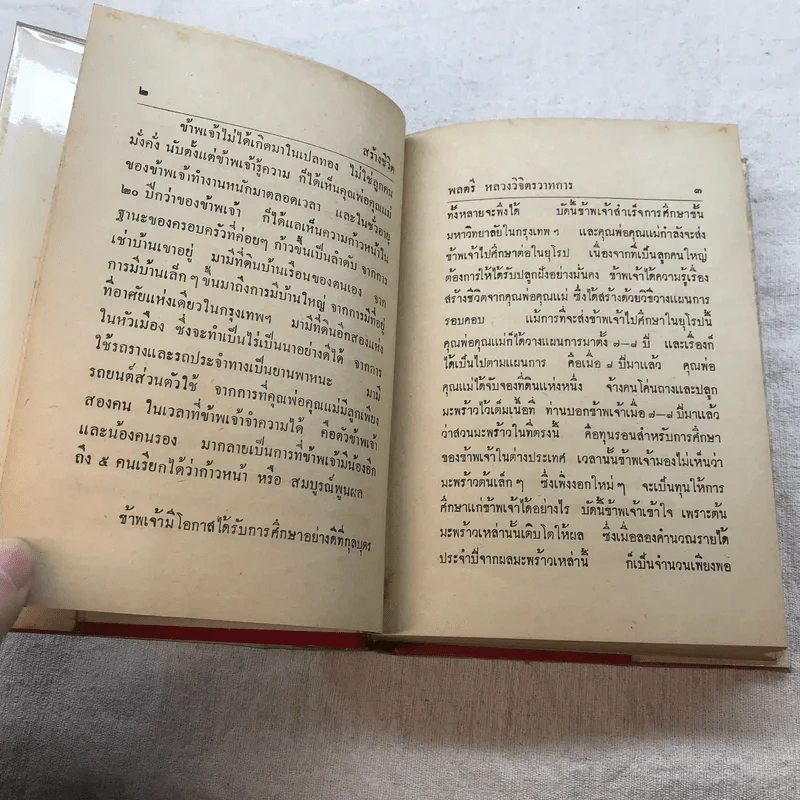 ๒
สร้างชีวิต
ข้าพเจ้าไม่ได้เกิดมาในเปลทอง ไม่ใช่ลูกคน
มั่งคั่ง นับตั้งแต่ข้าพเจ้ารู้ความ ก็ได้เห็นคุณพ่อคุณแม่
ของข้าพเจ้าทำงานหนักมาตลอดเวลา และในชั่วอายุ
๒๐ ปีกว่าของข้าพเจ้า ก็ได้แลเห็นความก้าวหน้าใน
ฐานะของครอบครัวที่ค่อยๆ ก้าวขึ้นเป็นลำดับ จากการ
เช่าบ้านเขาอยู่ มามีที่ดินบ้านเรือนของตนเอง จาก
การมีบ้านเล็กๆ ขึ้นมาถึงการมีบ้านใหญ่ จากการมีที่อยู่
ที่อาศัยแห่งเดียวในกรุงเทพฯ มามีที่ดินอีกสองแห่ง
ในหัวเมือง ซึ่งจะทำเป็นไร่เป็นนาอย่างดีได้ จากการ
ใช้รถรางและรถประจำทางเป็นยานพาหนะ มามี
รถยนต์ส่วนตัวใช้ จากการที่คุณพ่อคุณแม่มีลูกเพียง
สองคน ในเวลาที่ข้าพเจ้าจำความได้ คือตัวข้าพเจ้า
และน้องคนรอง มากลายเป็นการที่ข้าพเจ้ามีน้องอีก
ถึง ๕ คนเรียกได้ว่าก้าวหน้า หรือ สมบูรณ์พูนผล
ข้าพเจ้ามีโอกาสได้รับการศึกษาอย่างดีที่กุลบุตร
พลตรี หลวงวิจิตรวาทการ ๓
ทั้งหลายจะพึงได้ บัดนี้ข้าพเจ้าสำเร็จการศึกษาชั้น
มหาวิทยาลัยในกรุงเทพ ฯ และคุณพ่อคุณแม่กำลังจะส่ง
ข้าพเจ้าไปศึกษาต่อในยุโรป เนื่องจากที่เป็นลูกคนใหญ่
ต้องการให้ได้รับปลูกฝังอย่างมั่นคง ข้าพเจ้าได้ความรู้เรื่อง
สร้างชีวิตจากคุณพ่อคุณแม่ ซึ่งได้สร้างด้วยวิธีวางแผนการ
รอบคอบ แม้การที่จะส่งข้าพเจ้าไปศึกษาในยุโรปนี้
คุณพ่อคุณแม่ก็ได้วางแผนการมาตั้ง ๗-๘ ปี และเรื่องก็
ได้เป็นไปตามแผนการ คือเมื่อ ๘ ปีมาแล้ว คุณพ่อ
คุณแม่ได้จับจองที่ดินแห่งหนึ่ง จ้างคนโค่นถางและปลูก
มะพร้าวไว้เต็มเนื้อที่ ท่านบอกข้าพเจ้าเมื่อ ๗-๘ ปีมาแล้ว
ว่าสวนมะพร้าวในที่ตรงนี้ คือทุนรอนสำหรับการศึกษา
ของข้าพเจ้าในต่างประเทศ เวลานั้นข้าพเจ้ามองไม่เห็นว่า
มะพร้าวต้นเล็กๆ ซึ่งเพิ่งงอกใหม่ๆ จะเป็นทุนให้การ
ศึกษาแก่ข้าพเจ้าได้อย่างไร บัดนี้ข้าพเจ้าเข้าใจ เพราะต้น
มะพร้าวเหล่านั้นเติบโตให้ผล ซึ่งเมื่อลองคำนวณรายได้
ประจำปีจากผลมะพร้าวเหล่านี้ ก็เป็นจำนวนเพียงพอ